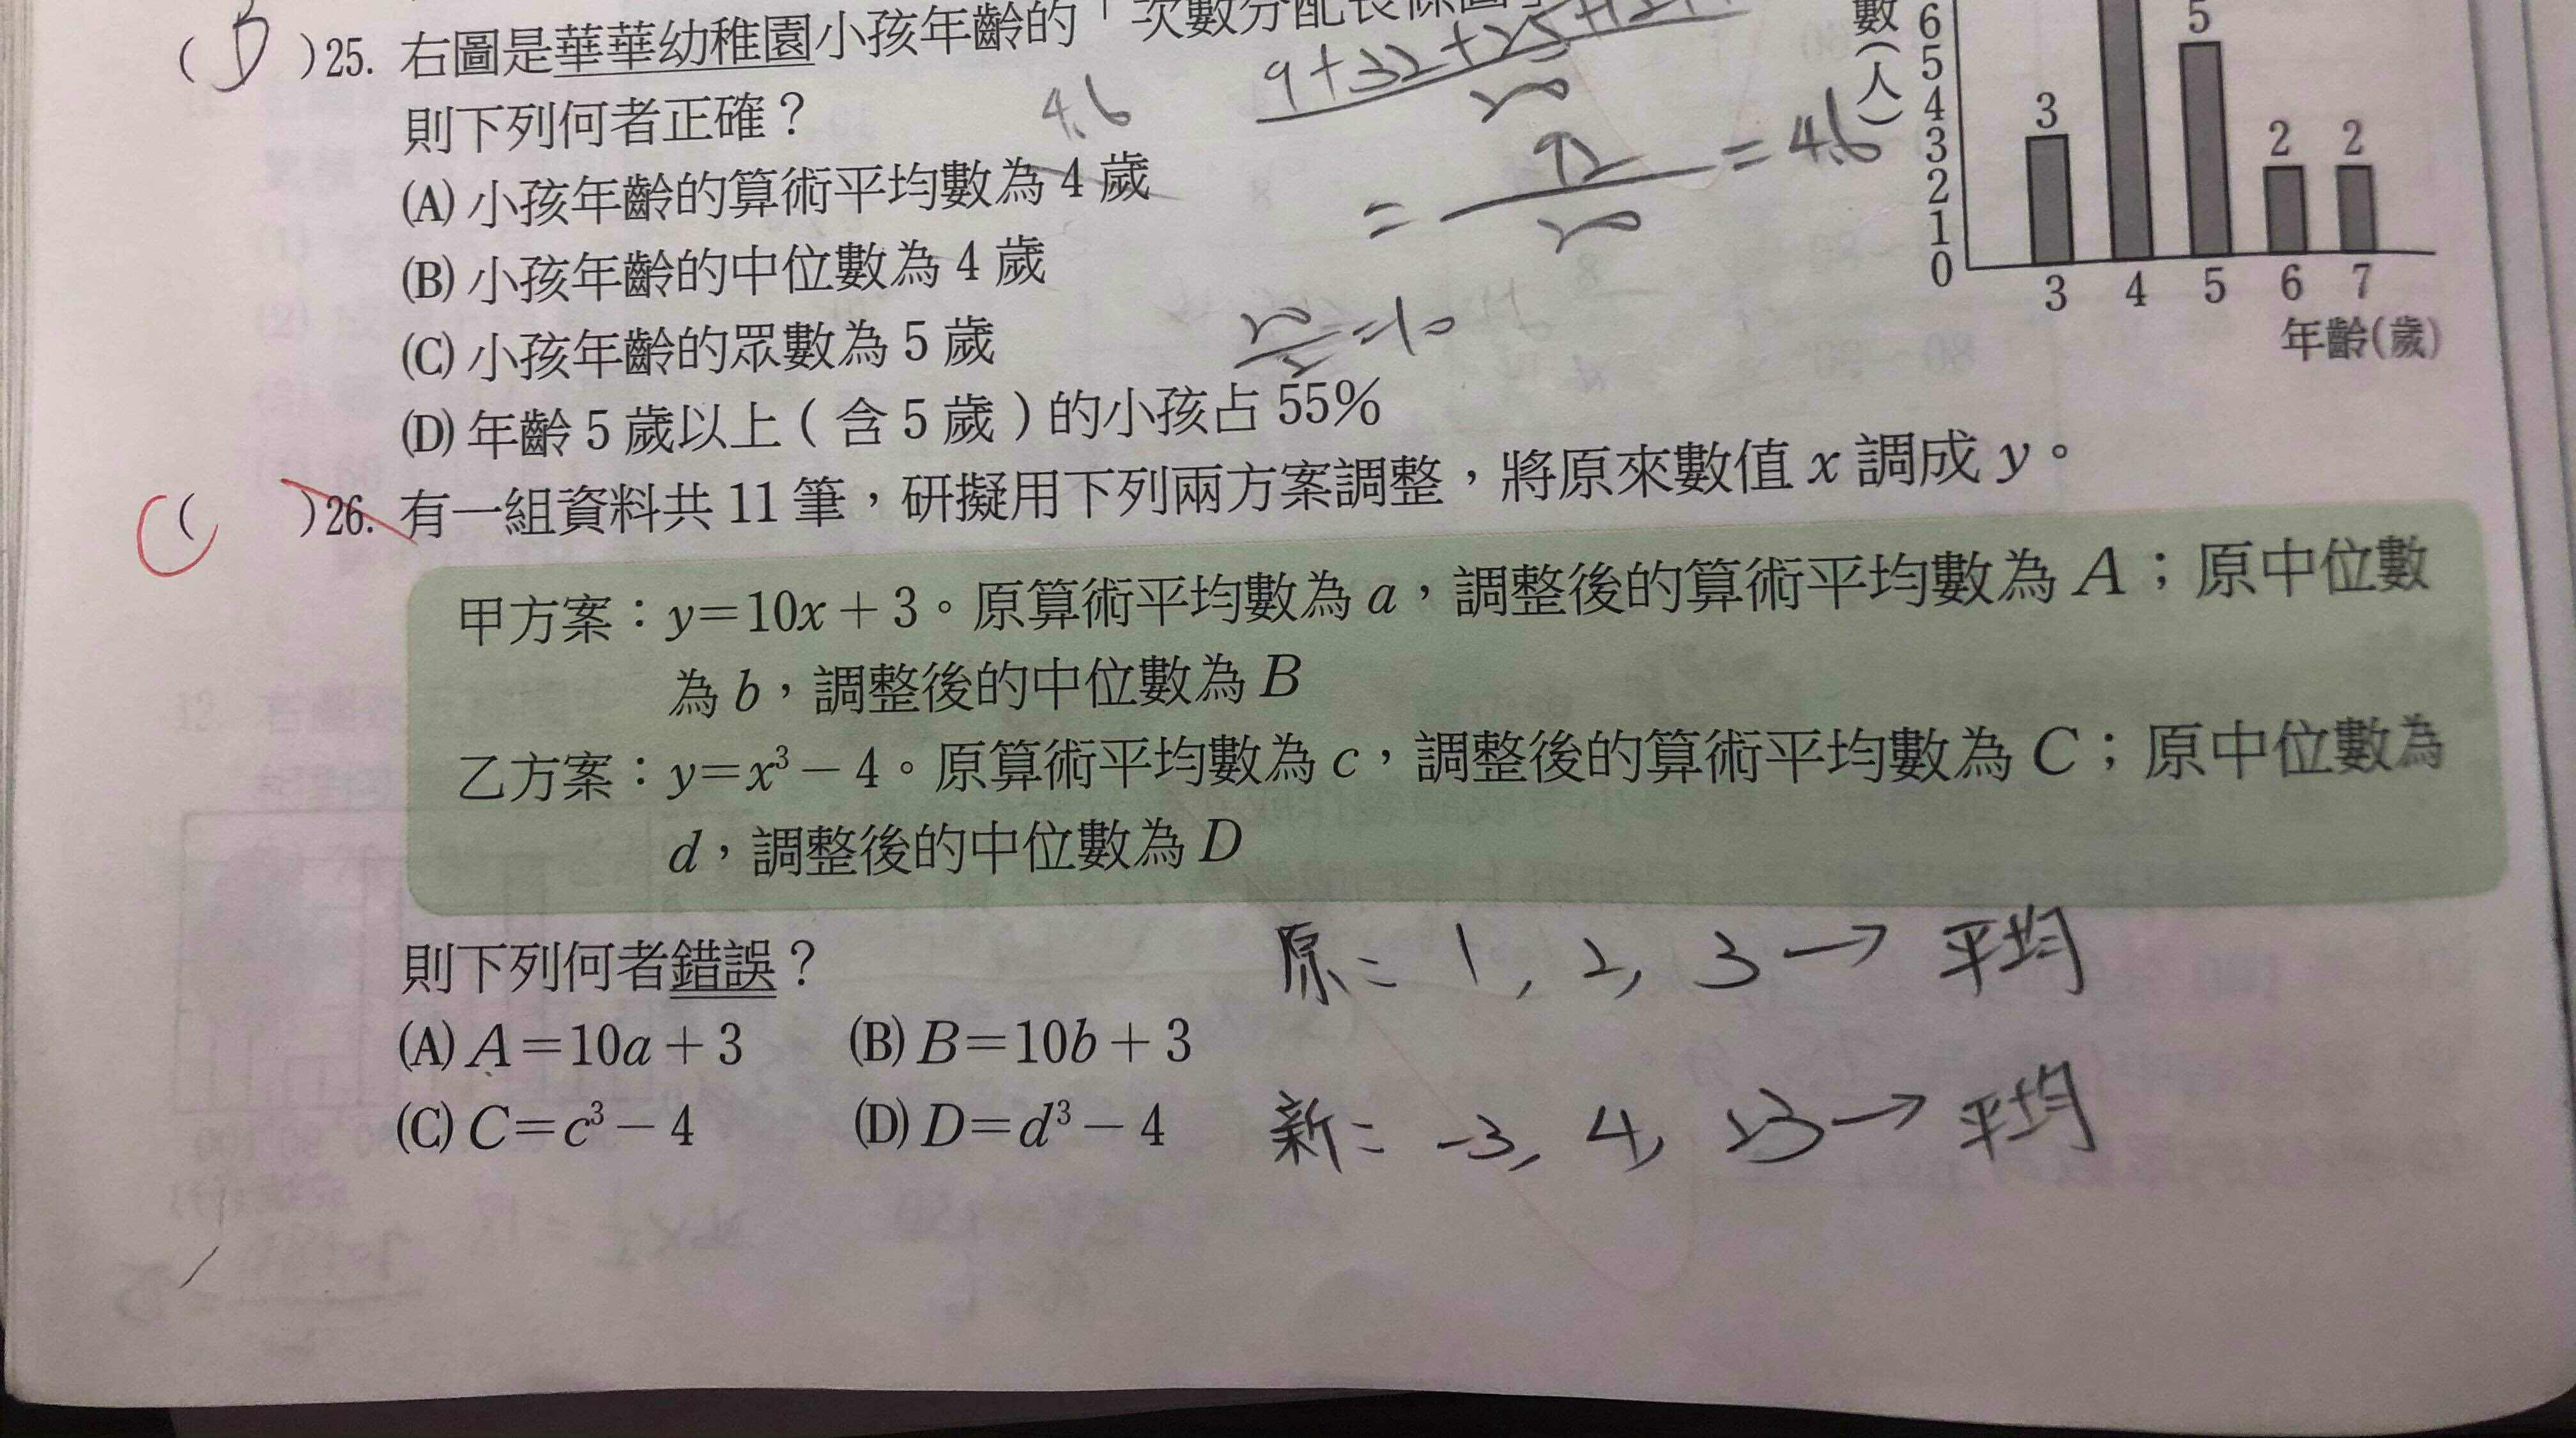 ( B )25. 右圖是華華幼稚園小孩年齡的「次數分配長條圖」
則下列何者正確？
(A) 小孩年齡的算術平均數為 4 歲
4.6
(B) 小孩年齡的中位數為 4 歲
(C) 小孩年齡的眾數為 5 歲
(D) 年齡 5 歲以上（含 5 歲）的小孩占 55%
9+32+25+12+
20
= 92
20
= 4.6
20
2
=10
數(人)
6
5
4
3
2
1
0
3
5
2
2
3 4 5 6 7
年齡(歲)
C ( )26. 有一組資料共 11 筆，研擬用下列兩方案調整，將原來數值 x 調成 y。
甲方案：y=10x+3。原算術平均數為 a，調整後的算術平均數為 A；原中位數
為 b，調整後的中位數為 B
乙方案：y=x³－4。原算術平均數為 c，調整後的算術平均數為 C；原中位數為
d，調整後的中位數為 D
則下列何者錯誤？
(A) A=10a+3 (B) B=10b+3
(C) C=c³－4 (D) D=d³－4
原= 1, 2, 3 → 平均
新= -3, 4, 23 → 平均